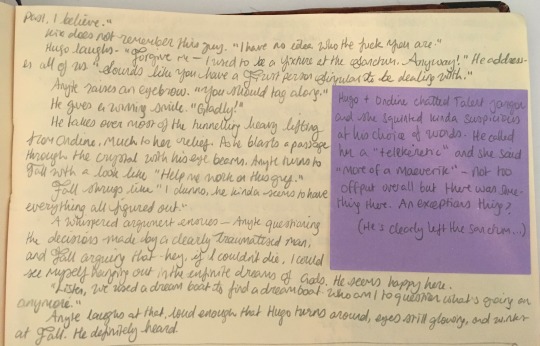 past, I believe."
Wix does not remember this guy. "I have no idea who the fuck you are."
Hugo laughs - "Forgive me - I used to be a fixture at the Sanctum. Anyway!" He address-
es all of us. "Sounds like you have a First person Singular to be dealing with."
Angle raises an eyebrow. "You should tag along."
He gives a winning smile. "Gladly!"
He takes over most of the tunnelling heavy lifting
from Ondine, much to her relief. As he blasts a passage
through the crystal with his eye beams, Angle turns to
Fall with a look like "Help me work on this guy."
Fall shrugs like "I dunno, he kinda seems to have
everything all figured out."
A whispered argument ensues - Angle questioning
the decisions made by a clearly traumatised man,
and Fall arguing that - hey, if I couldn't die, I could
see myself hanging out in the infinite dreams of Gods. He seems happy here.
"Listen, we used a dream boat to find a dreamboat. Who am I to question what's going on
anymore."
Angle laughs at that, loud enough that Hugo turns around, eyes still glowing, and winks
at Fall. He definitely heard.
Hugo + Ondine chatted Talent jargon
and she squinted kinda suspiciously
at his choice of words. He called
her a "telekinetic" and she said
"more of a maverick" - not too
offput overall but there was some-
thing there. An exceptions thing?
(He's clearly left the sanctum...)